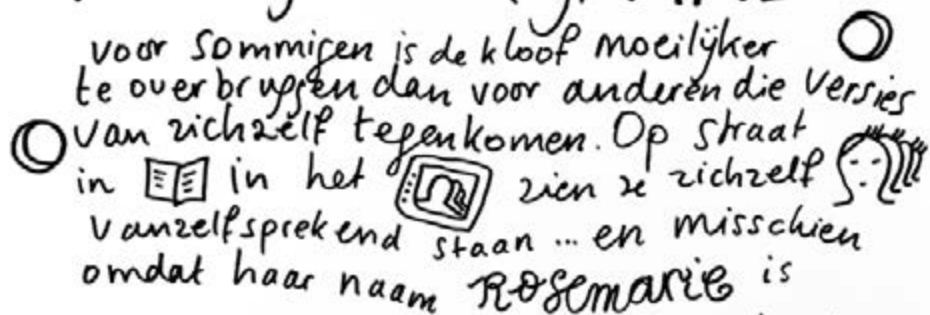 voor sommigen is de kloof moeilijker
te overbruggen dan voor anderen die versies
van zichzelf tegenkomen. Op straat
in in het zien ze zichzelf
vanzelfsprekend staan ... en misschien
omdat haar naam Rosemarie is